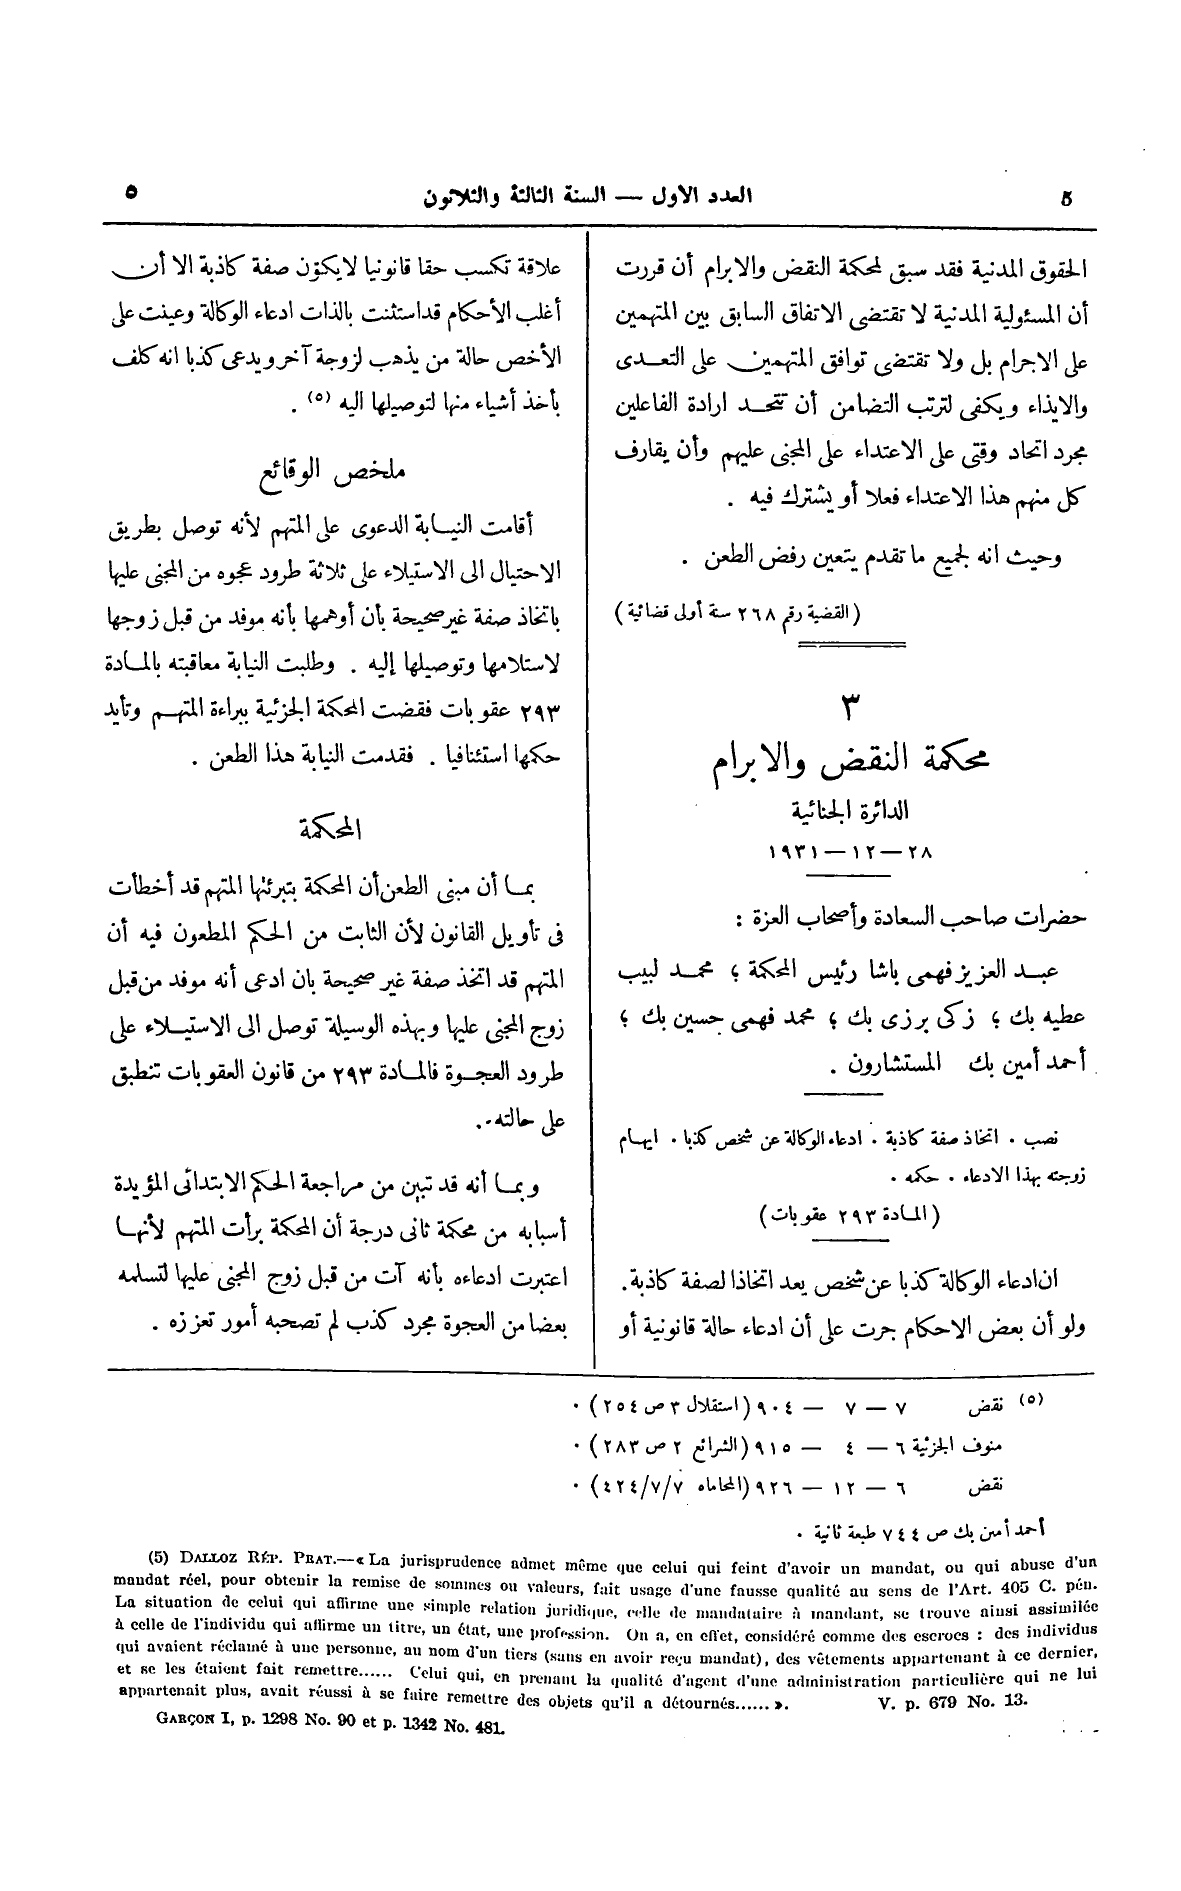 5 العدد الأول — السنة الثالثة والثلاثون ٥
الحقوق المدنية فقد سبق لمحكمة النقض والابرام أن قررت
أن المسئولية المدنية لا تقتضى الاتفاق السابق بين المتهمين
على الاجرام بل ولا تقتضى توافق المتهمين على التعدى
والايذاء ويكفى لترتب التضامن أن تتحد ارادة الفاعلين
مجرد اتحاد وقتى على الاعتداء على المجنى عليهم وأن يقارف
كل منهم هذا الاعتداء فعلا أو يشترك فيه .
وحيث انه لجميع ما تقدم يتعين رفض الطعن .
( القضية رقم ٢٦٨ سنة أولى قضائية )
٣
محكمة النقض والابرام
الدائرة الجنائية
٢٨ — ١٢ — ١٩٣١
حضرات صاحب السعادة وأصحاب العزة :
عبد العزيز فهمى باشا رئيس المحكمة ؛ محمد لبيب
عطيه بك ؛ زكى برزى بك ؛ محمد فهمى حسين بك ؛
أحمد أمين بك المستشارون .
نصب . اتخاذ صفة كاذبة . ادعاء الوكالة عن شخص كذبا . ايهام
زوجته بهذا الادعاء . حكمه .
( المادة ٢٩٣ عقوبات )
ان ادعاء الوكالة كذبا عن شخص يعد اتخاذا لصفة كاذبة .
ولو أن بعض الاحكام جرت على أن ادعاء حالة قانونية أو
علاقة تكسب حقا قانونيا لا يكوّن صفة كاذبة الا أن
أغلب الأحكام قد استثنت بالذات ادعاء الوكالة وعينت على
الأخص حالة من يذهب لزوجة آخر ويدعى كذبا انه كلف
بأخذ أشياء منها لتوصيلها اليه (٥) .
ملخص الوقائع
أقامت النيابة الدعوى على المتهم لأنه توصل بطريق
الاحتيال الى الاستيلاء على ثلاثة طرود عجوه من المجنى عليها
باتخاذ صفة غير صحيحة بأن أوهمها بأنه موفد من قبل زوجها
لاستلامها وتوصيلها إليه . وطلبت النيابة معاقبته بالمادة
٢٩٣ عقوبات فقضت المحكمة الجزئية ببراءة المتهم وتأيد
حكمها استئنافيا . فقدمت النيابة هذا الطعن .
المحكمة
بما أن مبنى الطعن أن المحكمة بتبرئتها المتهم قد أخطأت
فى تأويل القانون لأن الثابت من الحكم المطعون فيه أن
المتهم قد اتخذ صفة غير صحيحة بان ادعى أنه موفد من قبل
زوج المجنى عليها وبهذه الوسيلة توصل الى الاستيلاء على
طرود العجوة فالمادة ٢٩٣ من قانون العقوبات تنطبق
على حالته .
وبما أنه قد تبين من مراجعة الحكم الابتدائى المؤيدة
أسبابه من محكمة ثانى درجة أن المحكمة برأت المتهم لأنها
اعتبرت ادعاءه بأنه آت من قبل زوج المجنى عليها لتسلمه
بعضا من العجوة مجرد كذب لم تصحبه أمور تعززه .
(٥) نقض ٧ — ٧ — ٩٠٤ (استقلال ٣ ص ٢٥٤) .
منوف الجزئية ٦ — ٤ — ٩١٥ (الشرائع ٢ ص ٢٨٣) .
نقض ٦ — ١٢ — ٩٢٦ (المحاماه ٤٢٤/٧/٧) .
أحمد أمين بك ص ٧٤٤ طبعة ثانية .
(5) DALLOZ RÉP. PRAT.—« La jurisprudence admet même que celui qui feint d'avoir un mandat, ou qui abuse d'un
mandat réel, pour obtenir la remise de sommes ou valeurs, fait usage d'une fausse qualité au sens de l'Art. 405 C. pén.
La situation de celui qui affirme une simple relation juridique, celle de mandataire à mandant, se trouve ainsi assimilée
à celle de l'individu qui affirme un titre, un état, une profession. On a, en effet, considéré comme des escrocs : des individus
qui avaient réclamé à une personne, au nom d'un tiers (sans en avoir reçu mandat), des vêtements appartenant à ce dernier,
et se les étaient fait remettre...... Celui qui, en prenant la qualité d'agent d'une administration particulière qui ne lui
appartenait plus, avait réussi à se faire remettre des objets qu'il a détournés...... ». V. p. 679 No. 13.
GARÇON I, p. 1298 No. 90 et p. 1342 No. 481.